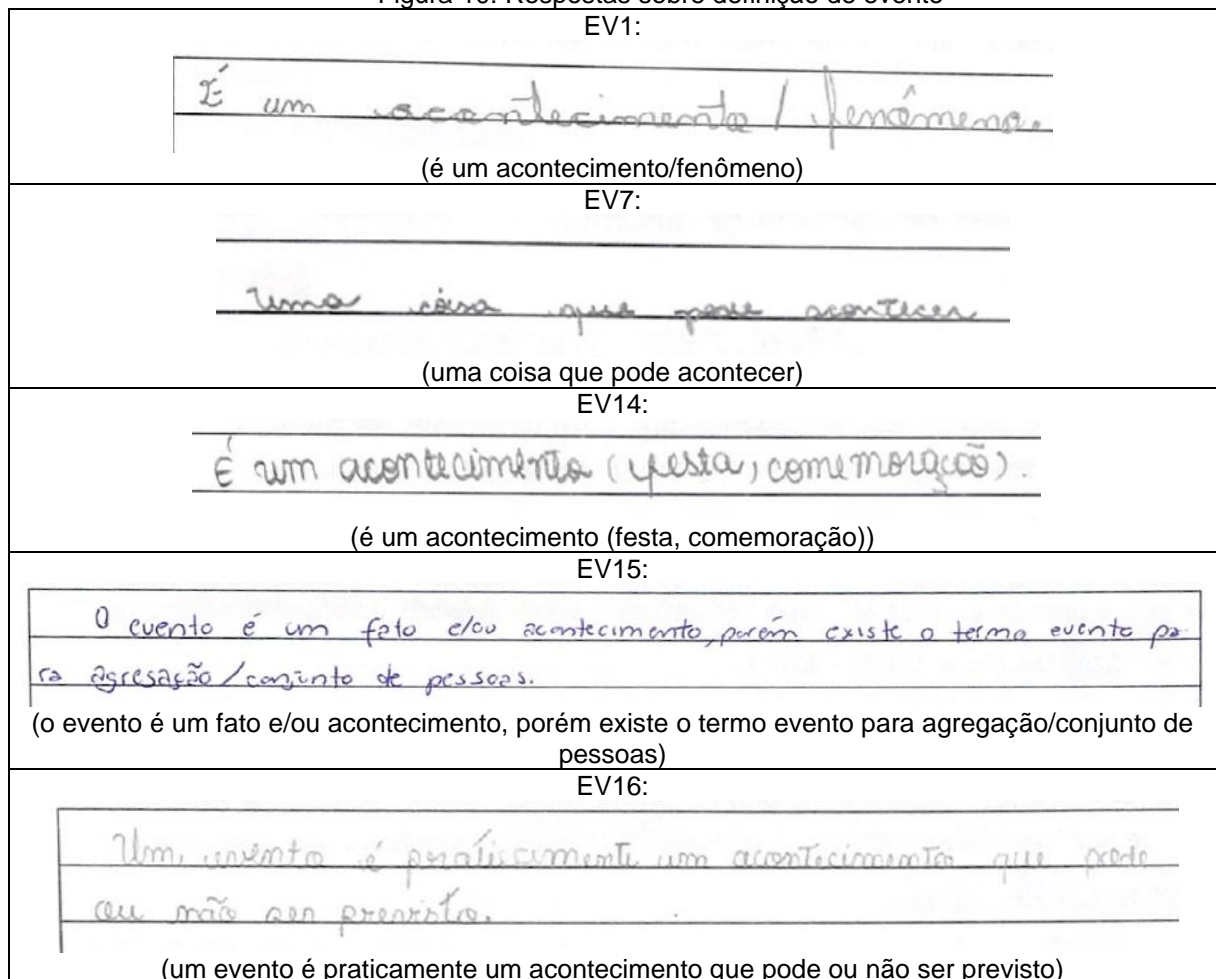 Figura 10: Respostas sobre definição de evento
EV1:
É um acontecimento / fenômeno.
(é um acontecimento/fenômeno)
EV7:
Uma coisa que pode acontecer
(uma coisa que pode acontecer)
EV14:
É um acontecimento (festa, comemoração).
(é um acontecimento (festa, comemoração))
EV15:
O evento é um fato e/ou acontecimento, porém existe o termo evento pa-
ra agregação/conjunto de pessoas.
(o evento é um fato e/ou acontecimento, porém existe o termo evento para agregação/conjunto de
pessoas)
EV16:
Um evento é praticamente um acontecimento que pode
ou não ser previsto.
(um evento é praticamente um acontecimento que pode ou não ser previsto)